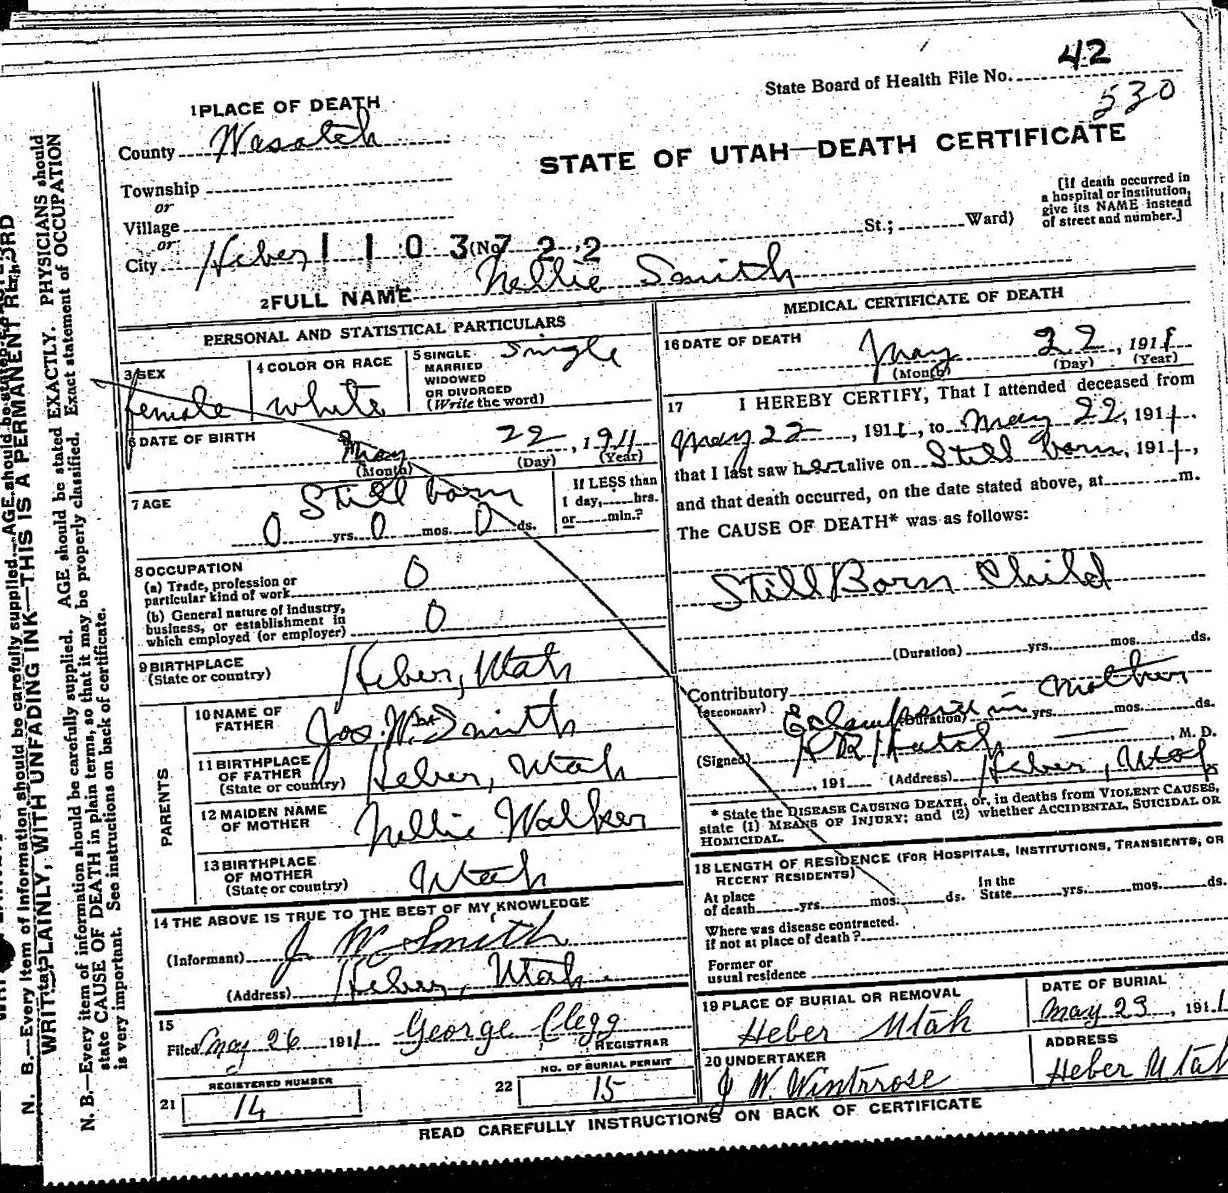 State Board of Health File No. 42
530
1 PLACE OF DEATH
County Wasatch
STATE OF UTAH—DEATH CERTIFICATE
Township
or
Village
or
City Heber 1103722 (No. St.; Ward)
[If death occurred in
a hospital or institution,
give its NAME instead
of street and number.]
2 FULL NAME Nellie Smith
PERSONAL AND STATISTICAL PARTICULARS
3 SEX
female
4 COLOR OR RACE
white
5 SINGLE
MARRIED
WIDOWED
OR DIVORCED
(Write the word)
Single
6 DATE OF BIRTH
May 22, 1911
(Month) (Day) (Year)
7 AGE
Still born
0 yrs. 0 mos. 0 ds.
If LESS than
1 day, hrs.
or min.?
8 OCCUPATION
(a) Trade, profession or
particular kind of work 0
(b) General nature of industry,
business, or establishment in
which employed (or employer) 0
9 BIRTHPLACE
(State or country) Heber, Utah
PARENTS
10 NAME OF
FATHER Jos. Wm Smith
11 BIRTHPLACE
OF FATHER
(State or country) Heber, Utah
12 MAIDEN NAME
OF MOTHER Nellie Walker
13 BIRTHPLACE
OF MOTHER
(State or country) Utah
14 THE ABOVE IS TRUE TO THE BEST OF MY KNOWLEDGE
(Informant) J W Smith
(Address) Heber, Utah
15
Filed May 26 1911 George Clegg
REGISTRAR
REGISTERED NUMBER
21 14
NO. OF BURIAL PERMIT
22 15
MEDICAL CERTIFICATE OF DEATH
16 DATE OF DEATH
May 22, 1911
(Month) (Day) (Year)
17 I HEREBY CERTIFY, That I attended deceased from
May 22, 1911, to May 22, 1911,
that I last saw her alive on Still born, 1911,
and that death occurred, on the date stated above, at m.
The CAUSE OF DEATH* was as follows:
Still Born Child
(Duration) yrs. mos. ds.
Contributory
(SECONDARY) Eclampsia in Mother
(Duration) yrs. mos. ds.
(Signed) Hatch, M. D.
, 191 (Address) Heber, Utah
* State the DISEASE CAUSING DEATH, or, in deaths from VIOLENT CAUSES,
state (1) MEANS OF INJURY; and (2) whether ACCIDENTAL, SUICIDAL OR
HOMICIDAL.
18 LENGTH OF RESIDENCE (FOR HOSPITALS, INSTITUTIONS, TRANSIENTS, OR
RECENT RESIDENTS)
At place
of death yrs. mos. ds.
In the
State yrs. mos. ds.
Where was disease contracted.
if not at place of death?
Former or
usual residence
19 PLACE OF BURIAL OR REMOVAL
Heber Utah
DATE OF BURIAL
May 23, 1911
20 UNDERTAKER
J W Wintrose
ADDRESS
Heber Utah
READ CAREFULLY INSTRUCTIONS ON BACK OF CERTIFICATE
WRITE PLAINLY, WITH UNFADING INK—THIS IS A PERMANENT RECORD
N. B.—Every item of information should be carefully supplied. AGE should be stated EXACTLY. PHYSICIANS should
state CAUSE OF DEATH in plain terms, so that it may be properly classified. Exact statement of OCCUPATION
is very important. See instructions on back of certificate.
N. B.—Every item of information should be carefully supplied. AGE should be stated